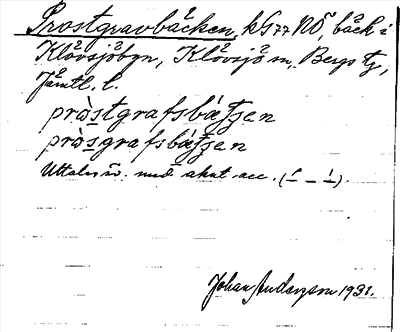 Prostgravbäcken, kG77NÖ, bäck i
Klövsjöbyn, Klövsjö sn, Bergs tg,
Jämtl. l.
pròstgrafsbätʃen
pròsgrafsbätʃen
Uttalas äv. med akut acc. (´ _ ` ).
Johan Anderson 1931.